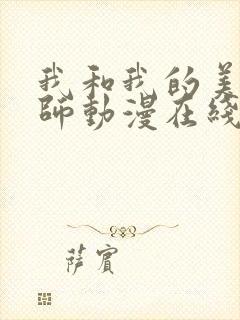 我和我的美
師動漫在綫
薩賓